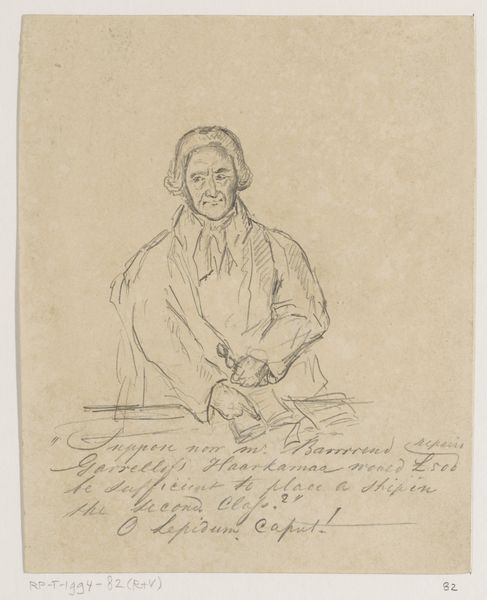 "Suppose now Mr. Barrrend repairs
Garrelliss Haarkamaa would £500
be sufficient to place a ship in
the second Class?"
O Lepidum Caput!
RP-T-1994-82 (R+V)
82